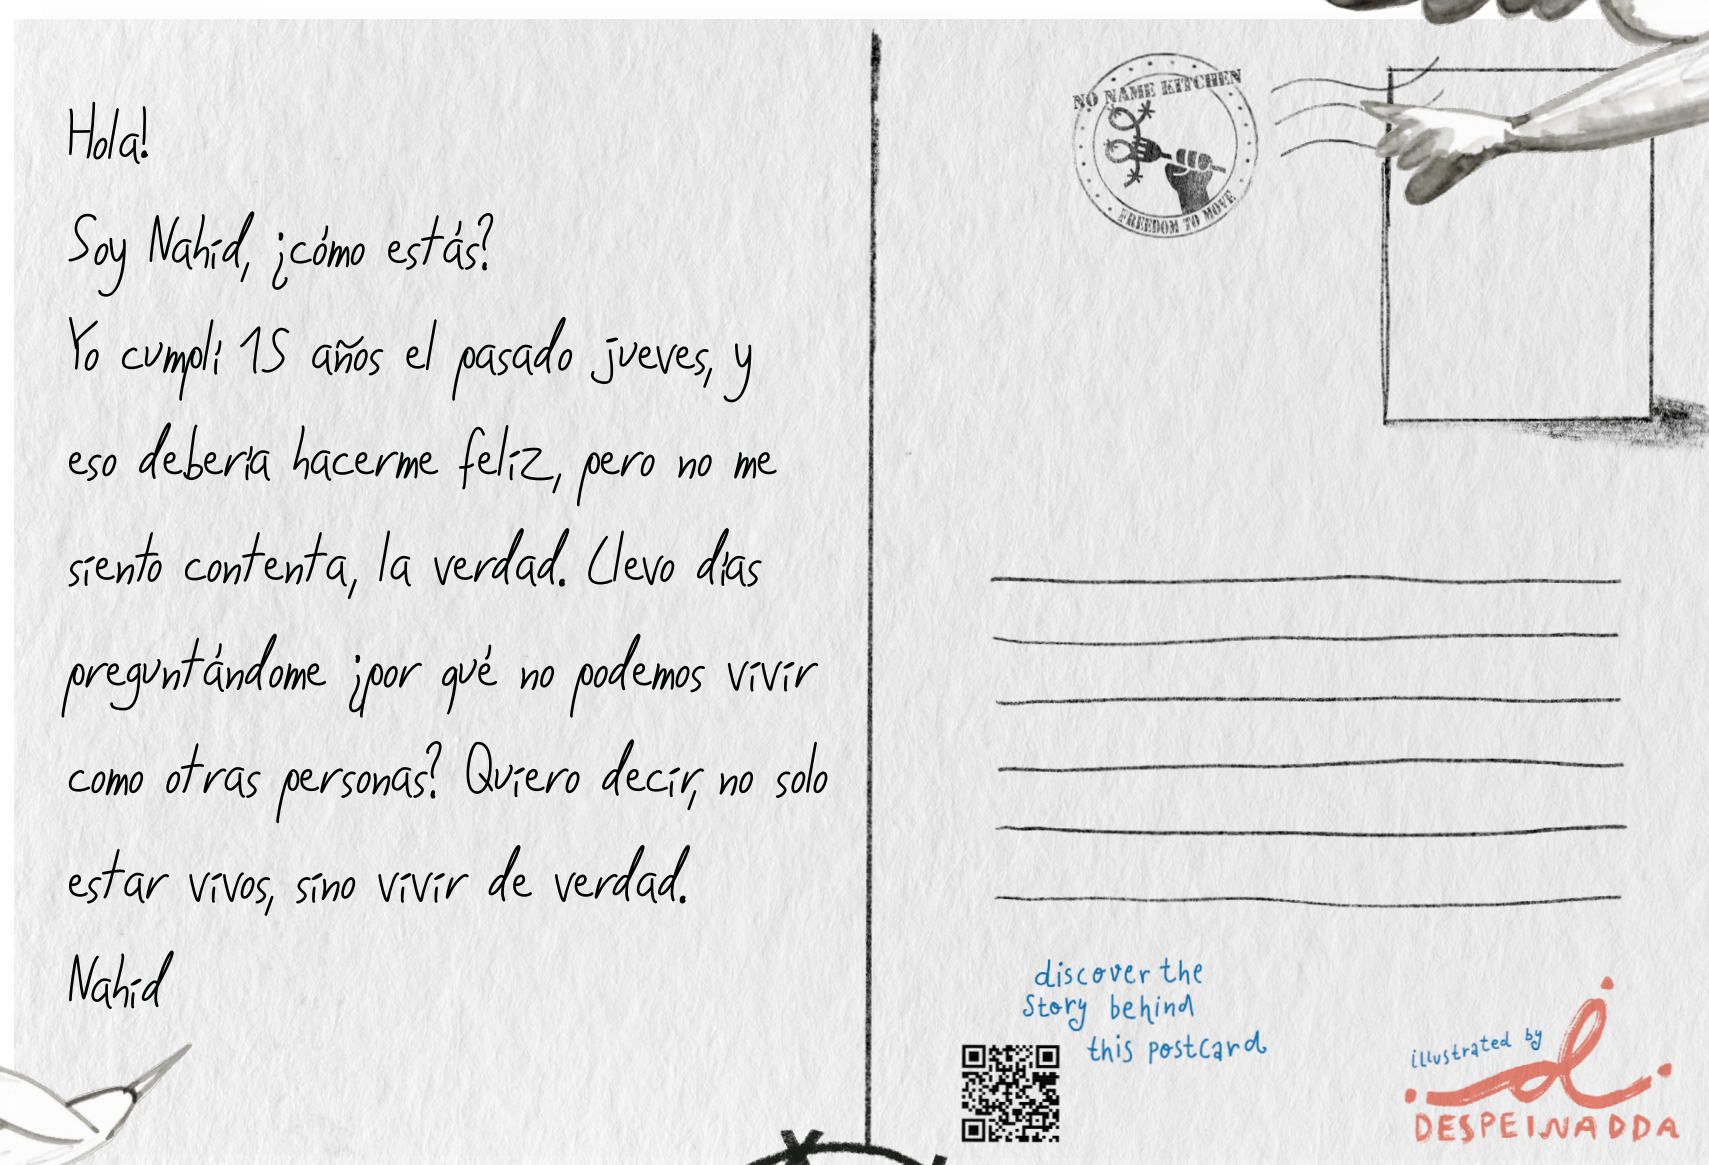 Hola!
Soy Nahid, ¿cómo estás?
Yo cumplí 15 años el pasado jueves, y
eso debería hacerme feliz, pero no me
siento contenta, la verdad. Llevo días
preguntándome ¿por qué no podemos vivir
como otras personas? Quiero decir, no solo
estar vivos, sino vivir de verdad.
Nahid
NO NAME KITCHEN
FREEDOM TO MOVE
discover the
story behind
this postcard
illustrated by
d
DESPEINADDA